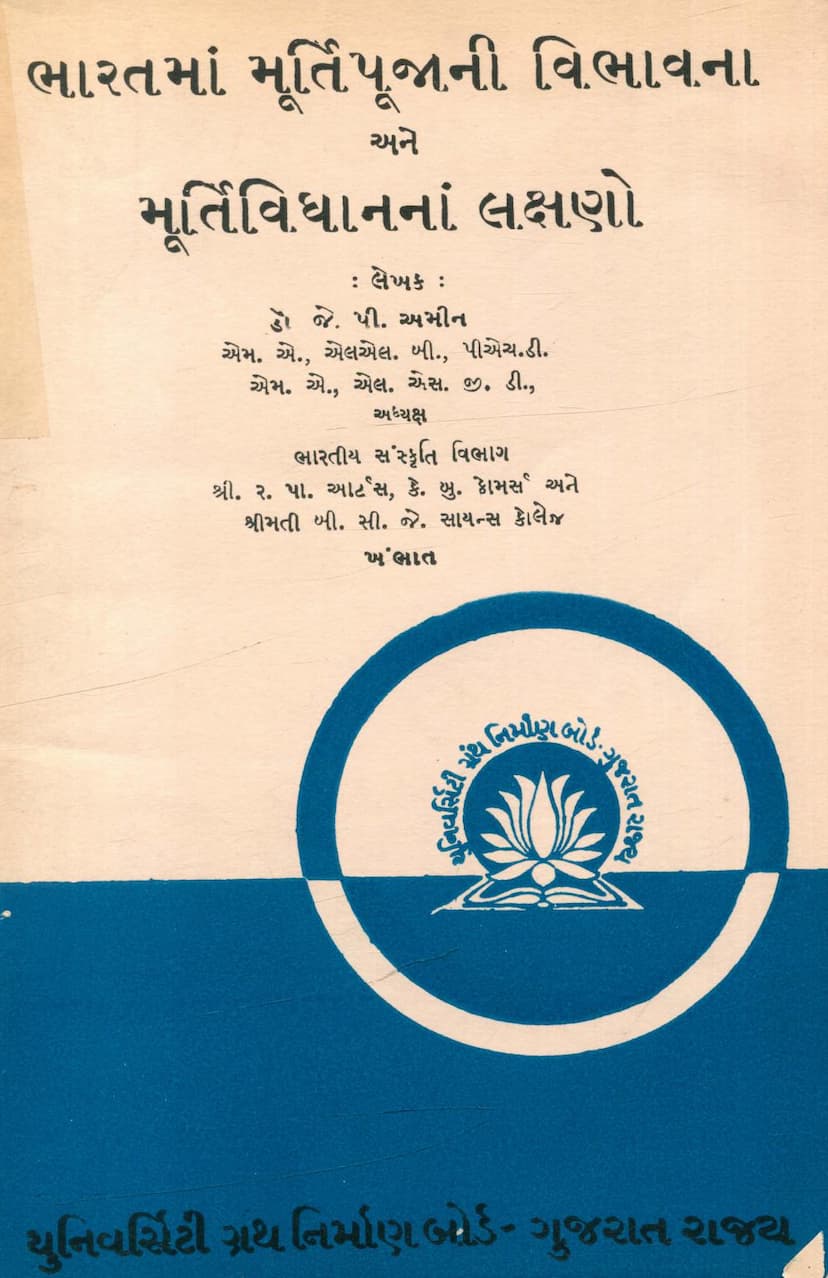 ભારતમાં મૂર્તિપૂજાની વિભાવના
અને
મૂર્તિવિધાનનાં લક્ષણો
: લેખક :
ડૉ જે. પી. અમીન
એમ. એ., એલએલ. બી., પીએચ.ડી.
એમ. એ., એલ. એસ. જી. ડી.,
અધ્યક્ષ
ભારતીય સંસ્કૃતિ વિભાગ
શ્રી. ર. પા. આર્ટ્સ, કે. બુ. કોમર્સ અને
શ્રીમતી બી. સી. જે. સાયન્સ કોલેજ
ખંભાત
યુનિવર્સિટી ગ્રંથ નિર્માણ બોર્ડ · ગુજરાત રાજ્ય
યુનિવર્સિટી ગ્રંથ નિર્માણ બોર્ડ - ગુજરાત રાજ્ય